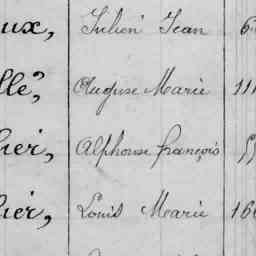 ux, Julien Jean 6
lle, Auguse Marie 111
hier, Alphonse françois 55
hier, Louis Marie 16